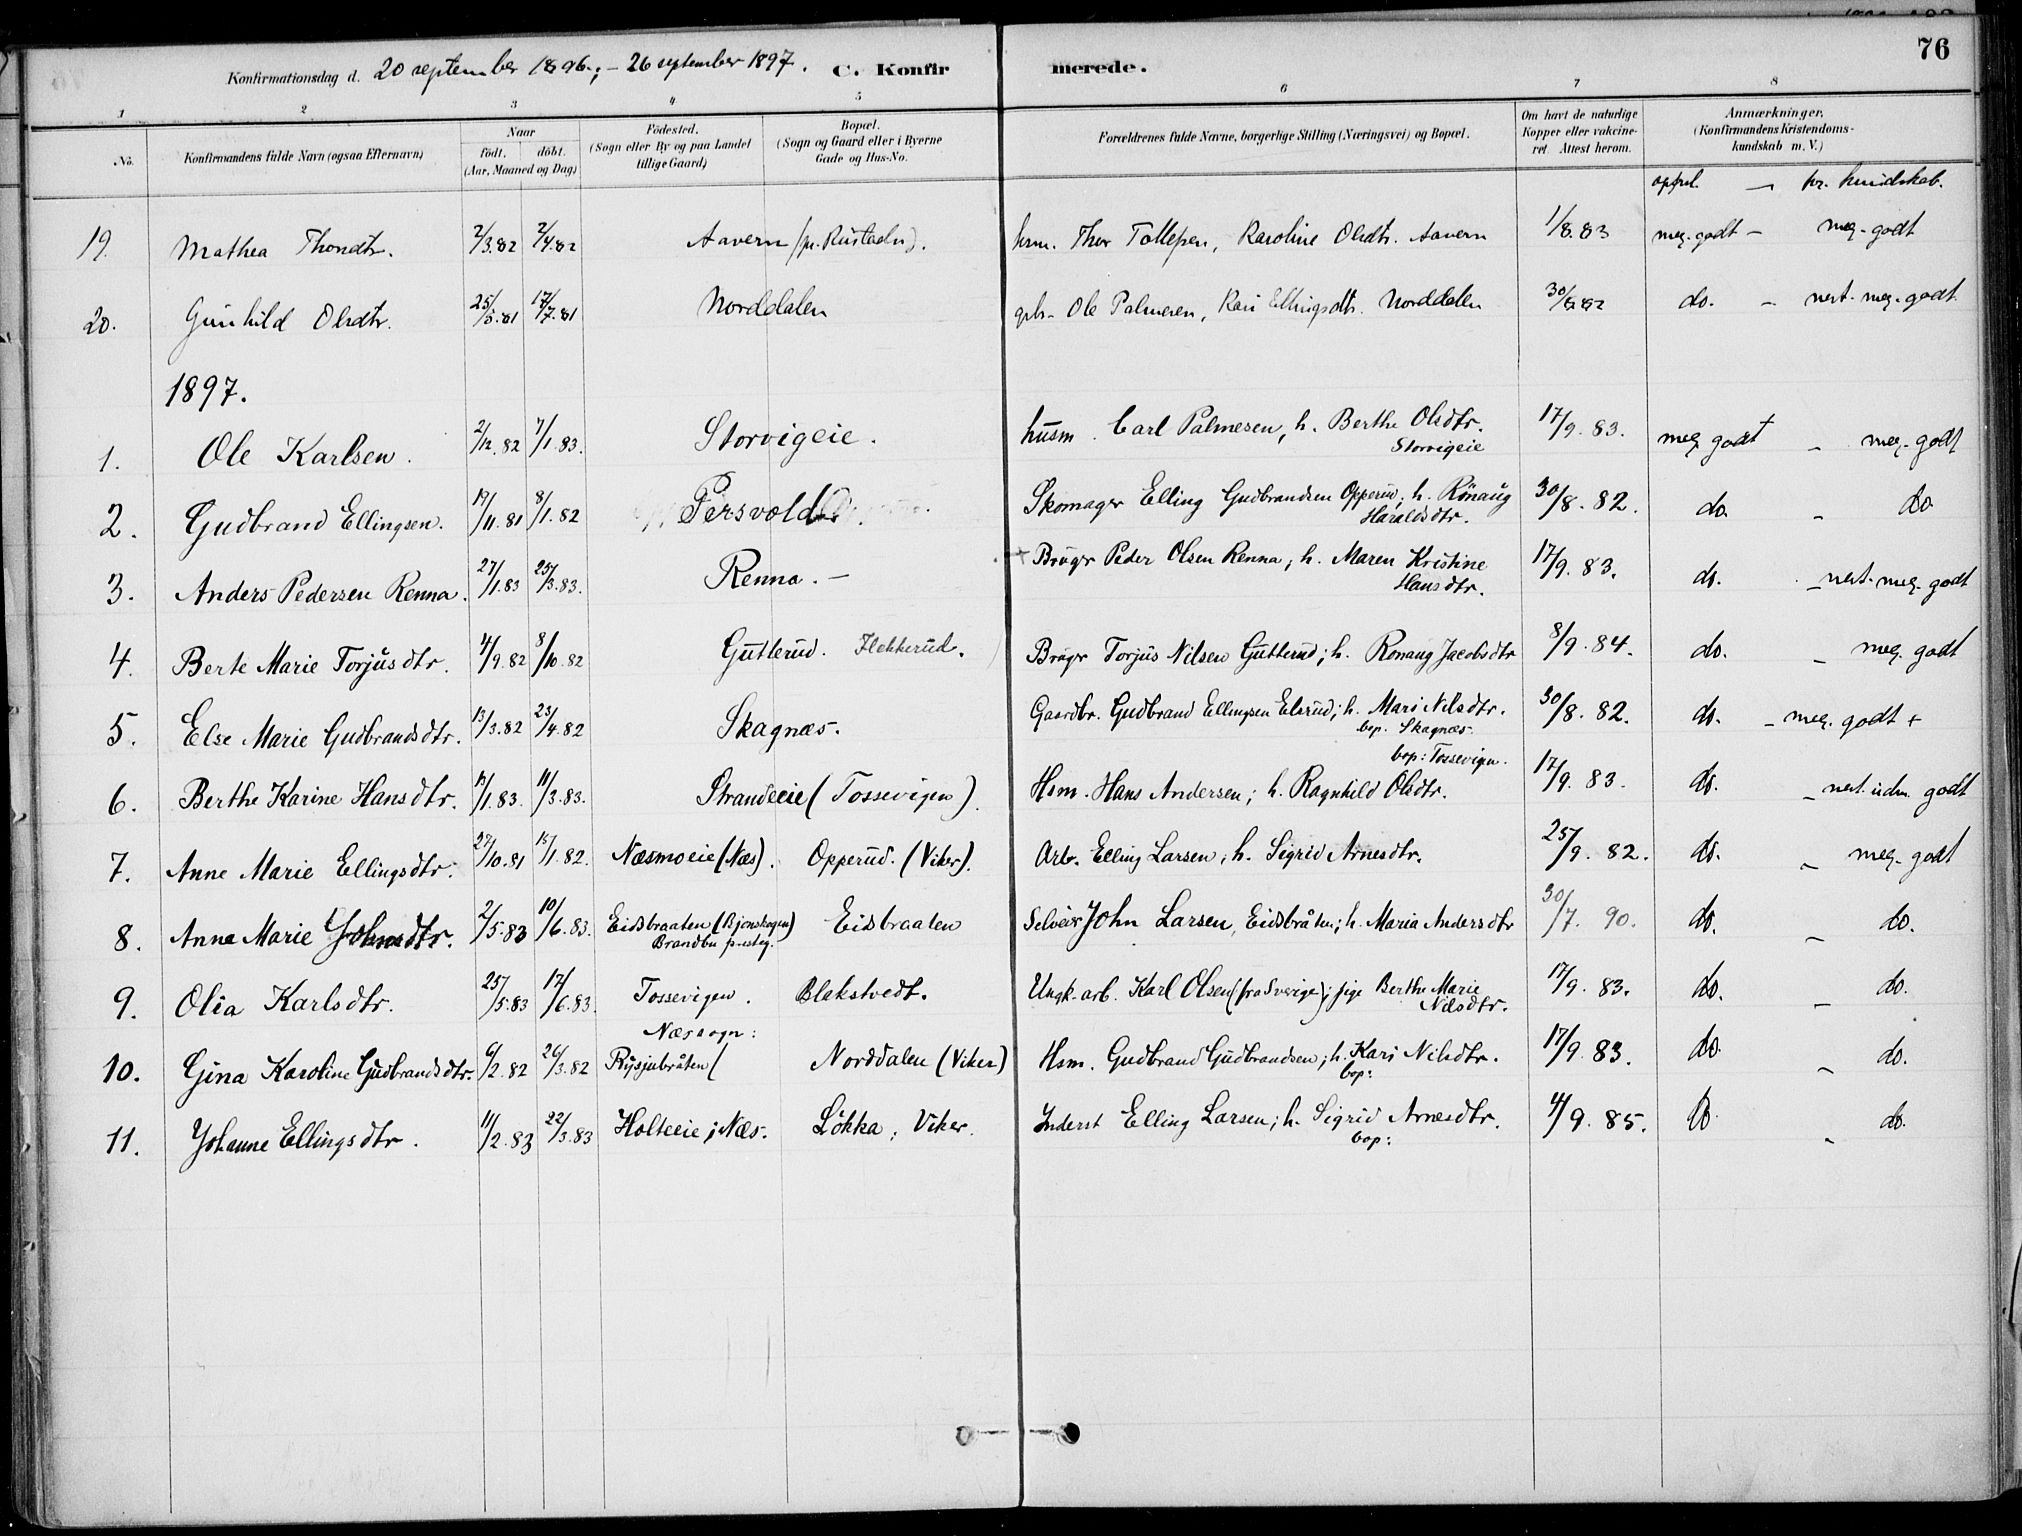 76
Konfirmationsdag d. 20 september 1896; - 26 september 1897. C. Konfirmerede.
1 2 3 4 5 6 7 8
No. Konfirmandens fulde Navn (ogsaa Efternavn) Naar födt. döbt. (Aar, Maaned og Dag) Födested. (Sogn eller By og paa Landet tillige Gaard) Bopæl. (Sogn og Gaard eller i Byerne Gade og Hus-No. Forældrenes fulde Navne, borgerlige Stilling (Næringsvei) og Bopæl. Om havt de naturlige Kopper eller vakcineret. Attest herom. Anmærkninger, (Konfirmandens Kristendomskundskab m. V.)
kr. kundskab.
19. Mathea Thordtr. 2/3.82 2/4.82 Aavern Thor Tollefsen, Karoline Olsdtr. Aavern 1/8.83 meg. godt - meg. godt
20. Gunhild Olsdtr. 25/5.81 17/7.81 Norddalen Ole Palmesen, Kari Ellingsdtr. Norddalen 30/8.82 do. - nest. meg. godt
1897.
1. Ole Karlsen. 2/12.82 7/1.83. Storvigeie. husm. Carl Palmesen, h. Berthe Olsdtr. Storvigeie 17/9.83. meg godt - meg. godt
2. Gudbrand Ellingsen. 19/11.81 8/1.82 Persvold. Skomager Elling Gudbrandsen Opperud; h. Rönaug Haraldsdtr. 30/8.82. do. - do
3. Anders Pedersen Renna. 27/1.83 25/3.83. Renna. - + Bruger Peder Olsen Renna; h. Maren Kristine Hansdtr. 17/9.83. do. - nest. meg. godt
4. Berte Marie Torjusdtr. 4/9.82 8/10.82 Gutterud. Flekkerud. Bruger Torjus Nilsen Gutterud; h. Rønaug Jacobsdtr 8/9.84. do. - meg. godt
5. Else Marie Gudbrandsdtr. 13/3.82 23/4.82 Skagnæs. Gaardbr. Gudbrand Ellingsen Elsrud; h. Mari Nilsdtr. bop. Skagnæs. 30/8.82. do. - meg. godt +
6. Berthe Karine Hansdtr. 13/1.83. 11/3.83. Strandeeie (Tossevigen). Hsm. Hans Andersen; h. Ragnhild Olsdtr. bop: Tossevigen. 17/9.83. do. - nest. udm. godt
7. Anne Marie Ellingsdtr. 27/10.81 15/1.82. Næsmoeie (Næs). Opperud. (Viker). Arb. Elling Larsen; h. Sigrid Arnesdtr. 25/9.82. do. - meg. godt
8. Anne Marie Johnsdtr. 2/5.83 10/6.83. Eidsbraaten (Bjoneskogen) Brandbu p-estg. Eidsbraaten Selveier John Larsen, Eidsbråten; h. Maria Andersdtr 30/7.90. do. - do.
9. Olia Karlsdtr. 25/5.83 17/6.83. Tossevigen. Blakstvedt. Ungk. arb. Karl Olsen (fra Sverige); pige Berthe Marie Nilsdtr. 17/9.83. do. - do.
10. Gina Karoline Gudbrandsdtr. 6/2.82 26/3.82 Næssogn: Rysjubråten ( Norddalen (Viker) Hsm. Gudbrand Gudbrandsen; h. Kari Nilsdtr. bop: 17/9.83. do. - do.
11. Johanne Ellingsdtr. 11/2.83 22/3.83 Holteeie; Næs. Lökka; Viker. Inderst Elling Larsen; h. Sigrid Arnesdtr. bop: 4/9.85. do. - do.